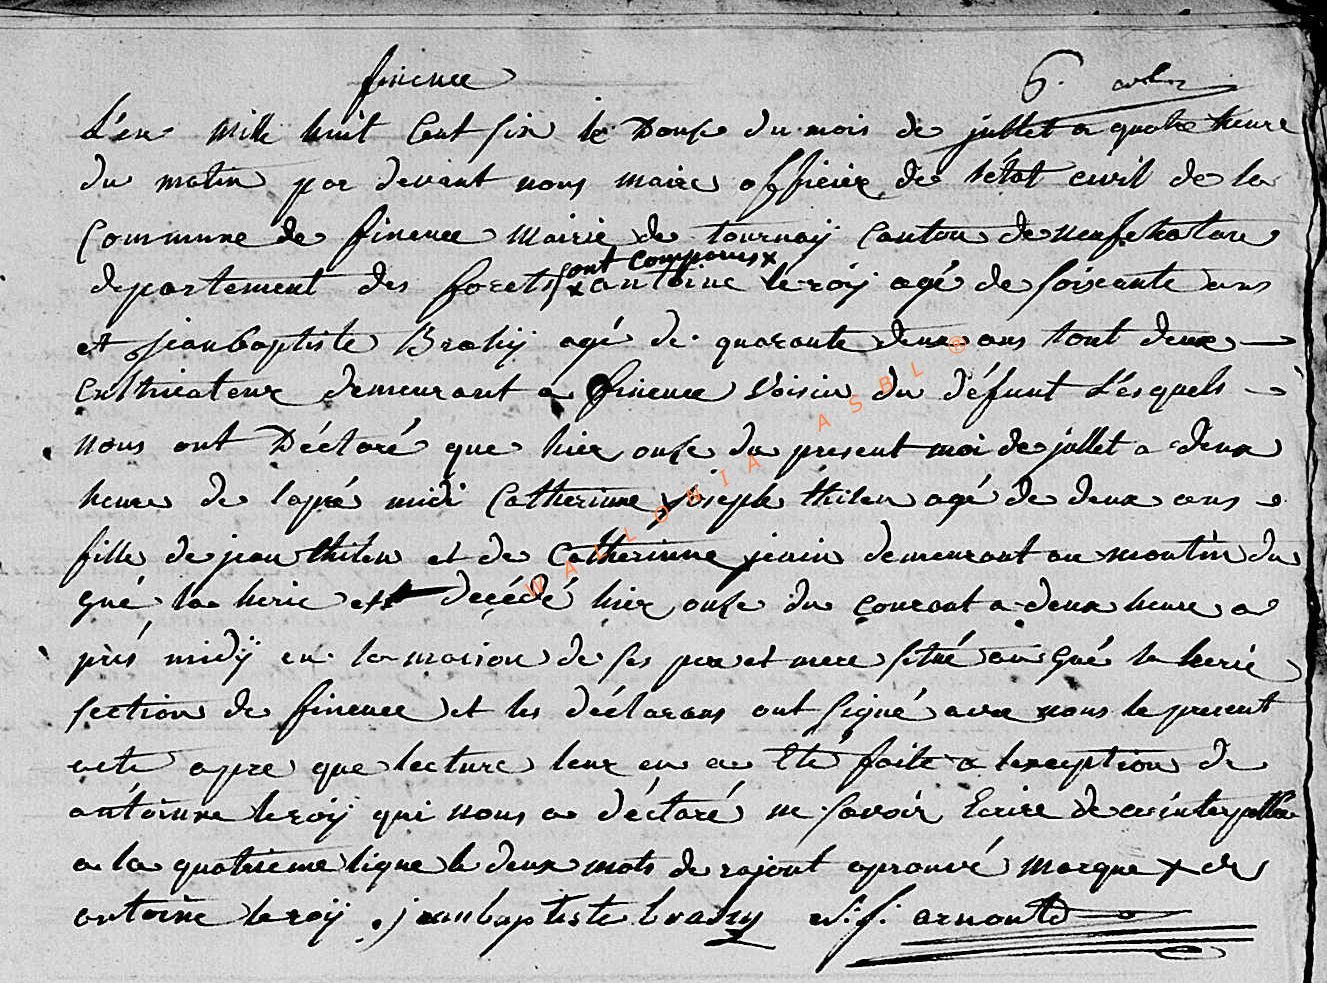 fineuce 6.
L'en mille huit Cent six le Douse du mois de jullet a quatre heure
du matin par devant nous maire officier de l'état civil de la
Commune de fineuce Mairie de tournay Canton de neufchatau
departement des forets sont comparus x
x antoine leroÿ agé de soixante ans
et jeanbaptiste Brahÿ agé de quarante deux ans tout deux
Cultivateur demeurant a fineuce Voisin du défunt Lesquels
nous ont Déclaré que hier onse du present moi de jullet a deux
heure de lapré midi Catherinne joseph thilen agé de deux ans
fille de jean thilen et de Catherinne jenin demeurant au moulin du
gué la herie est decédé hier onse du courant a deux heure a
prés midÿ en la maison de ses pere et mere situé au gué la herie
section de fineuce et les déclarans ont signé avec nous le present
acte apre que lecture leur en a Eté faite a lexception de
antoinne leroÿ qui nous a déclaré ne savoir Ecrire de ce interpellé
a la quatrieme ligne le deux mots de rajout aprouvé marque x de
antoine leroÿ . jeanbaptiste brahy arnould
WALLONIA ASBL ®